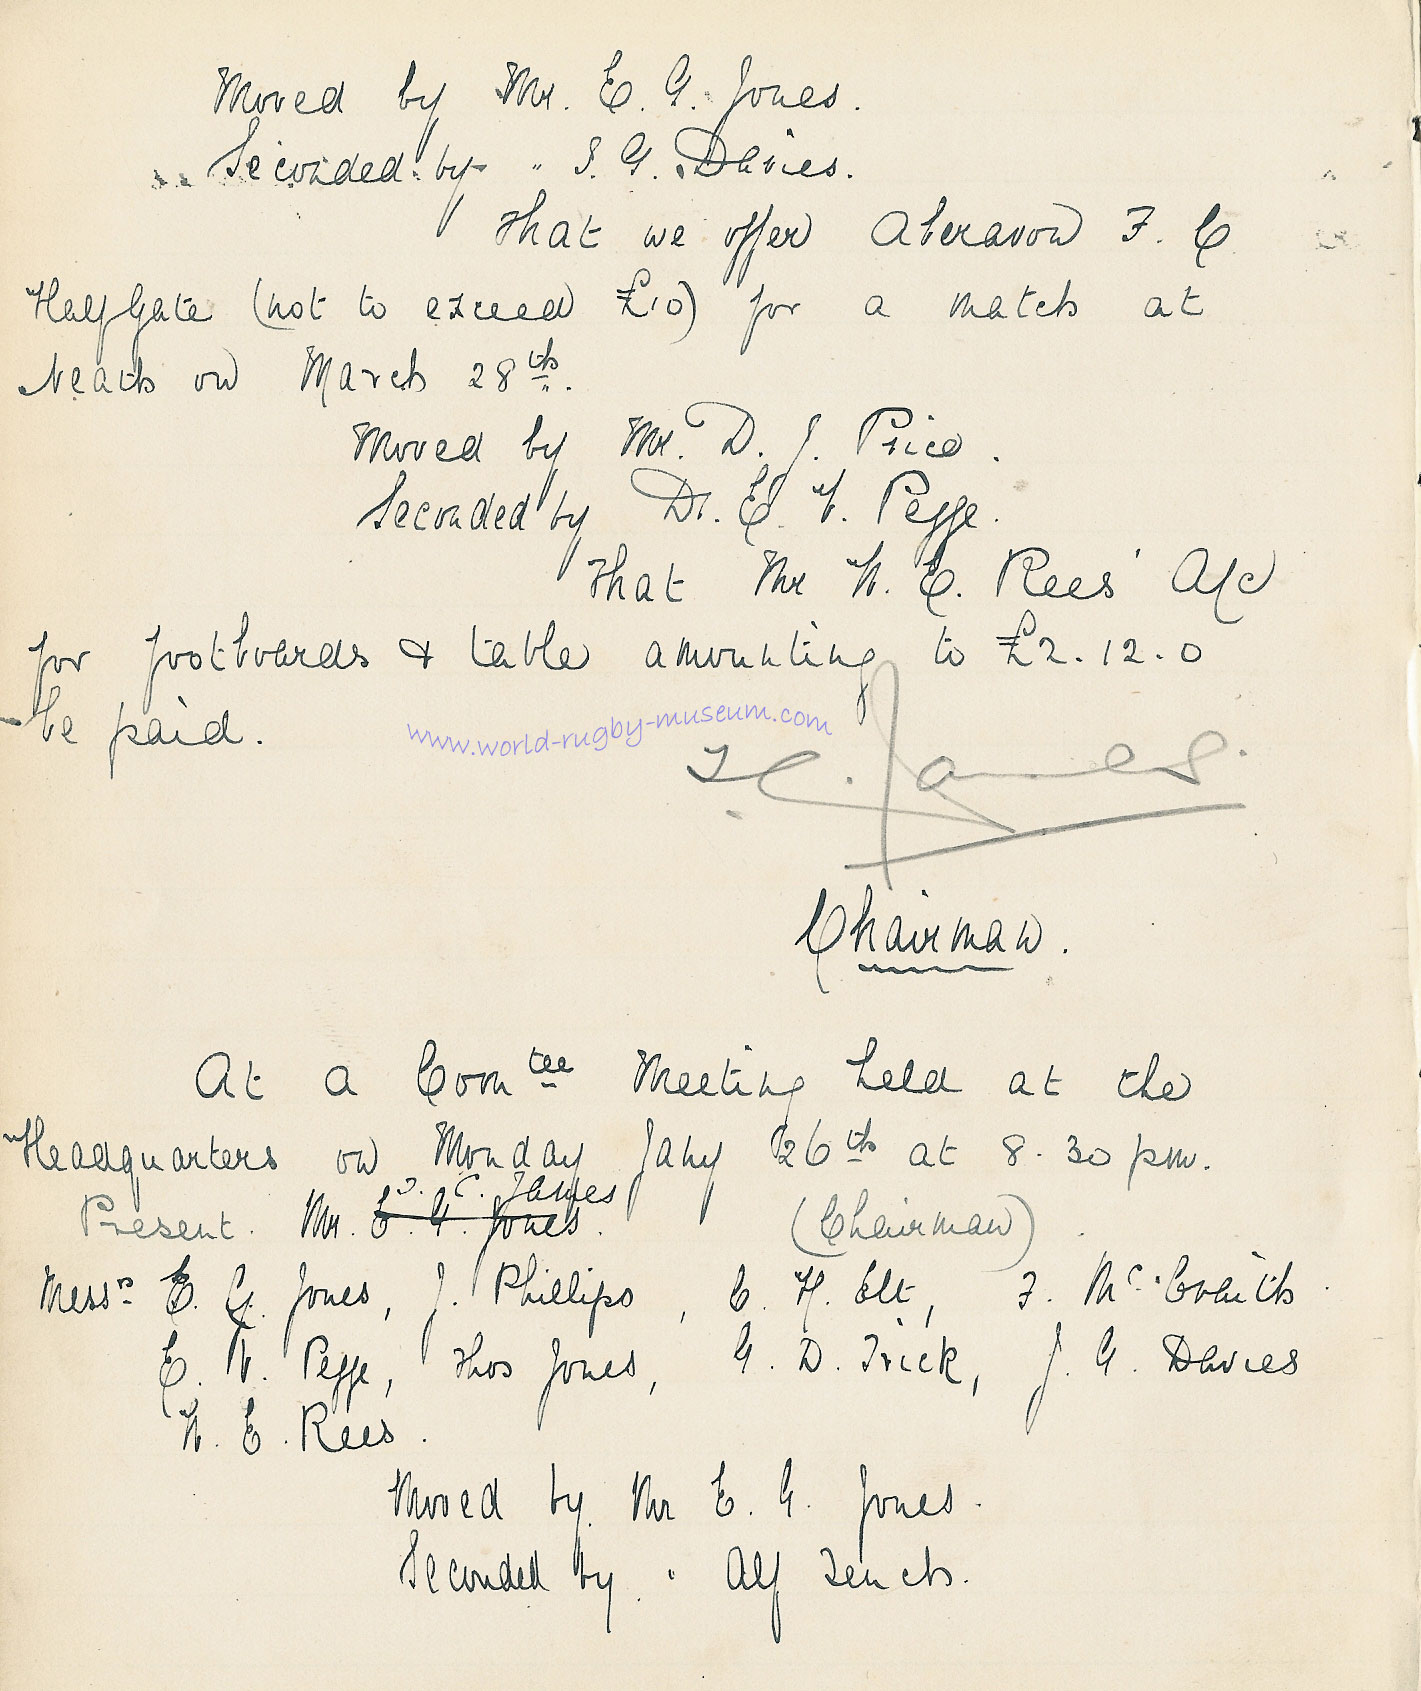 Moved by Mr. E. G. Jones.
Seconded by " J. G. Davies.
That we offer Aberavon F. C
Half Gate (not to exceed £10) for a match at
Neath on March 28th.
Moved by Mr. D. J. Price.
Seconded by Dr. E. V. Pegge.
That Mr W. E. Rees' A/c
for footboards & table amounting to £2.12.0
be paid.
www.world-rugby-museum.com
James.
Chairman.
At a Comtee Meeting held at the
Headquarters on Monday Jany 26th at 8.30 pm.
C. James
Present. Mr. E. G. Jones. (Chairman)
Messrs E. G. Jones, J. Phillips, C. H. Elt, F. McCraith
E. V. Pegge, Thos Jones, G. D. Trick, J. G. Davies
W. E. Rees.
Moved by Mr E. G. Jones.
Seconded by " Alf Tench.